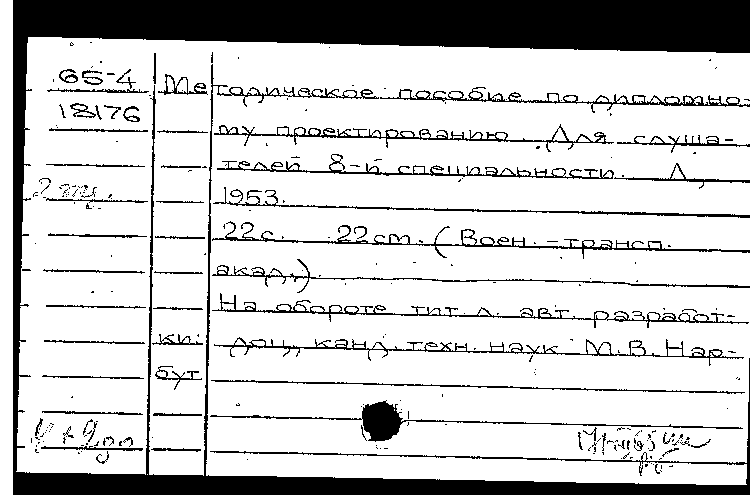 65-4
18176
2 экз.
Методическое пособие по дипломно-
му проектированию. Для слуша-
телей 8-й специальности. Л.,
1953.
22 с. 22 cm. (Воен.-трансп.
акад.)
На обороте тит. л. авт. разработ-
ки: доц., канд. техн. наук М.В. Нар-
бут